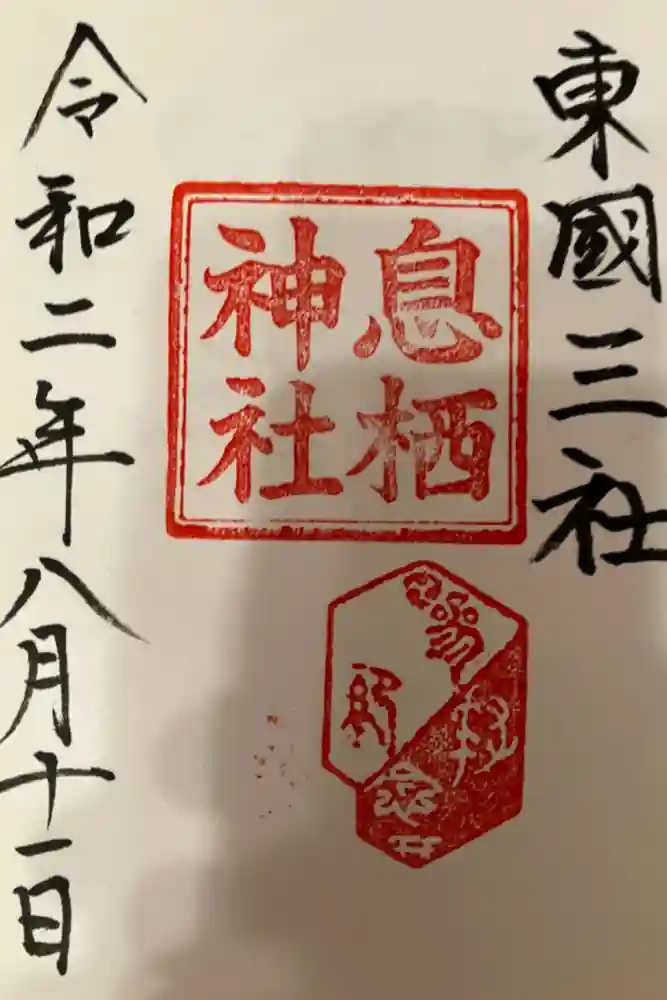 東國三社
息栖
神社
令和二年八月十一日